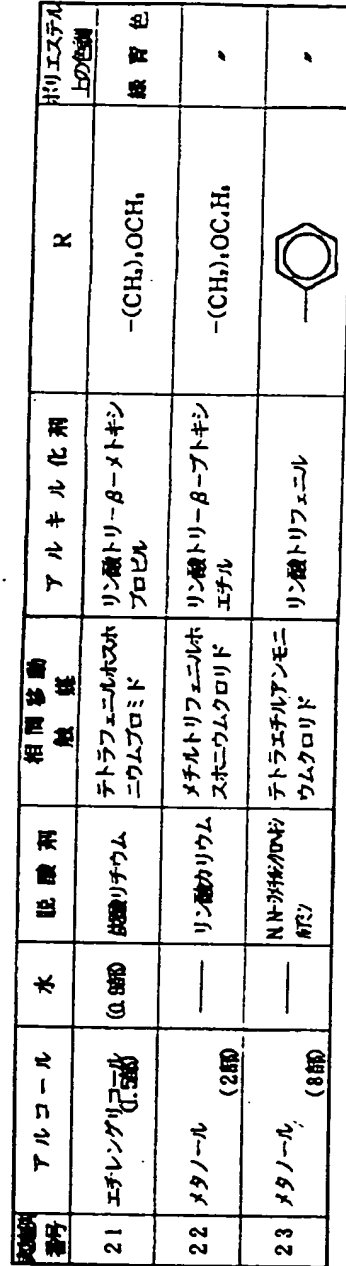 実施例番号 アルコール 水 脱酸剤 相間移動触媒 アルキル化剤 R ポリエステル上の色調
21 エチレングリコール (1.5部) (0.8部) 炭酸リチウム テトラフェニルホスホニウムブロミド リン酸トリ-β-メトキシプロピル -(CH₂)₃OCH₃ 緑青色
22 メタノール (2部) —— リン酸カリウム メチルトリフェニルホスホニウムクロリド リン酸トリ-β-ブトキシエチル 〃
23 メタノール (8部) —— テトラエチルアンモニウムクロリド リン酸トリフェニル 〃